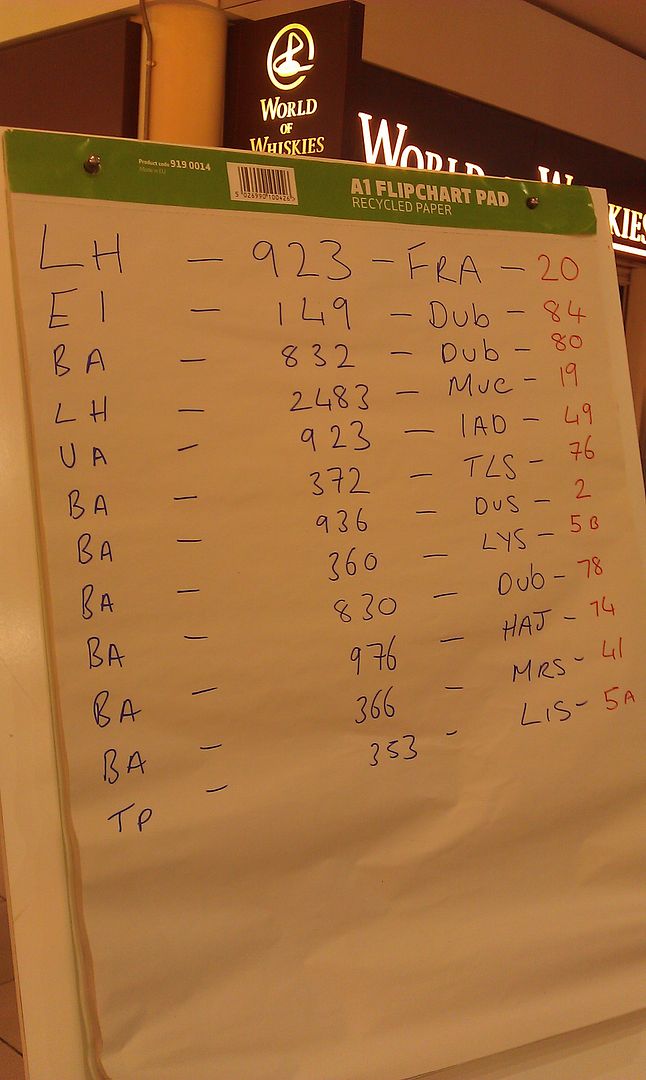 WORLD
OF
WHISKIES
WORLD OF WHISKIES
Product code 919 0014
Made in EU
5 026990 100426
A1 FLIPCHART PAD
RECYCLED PAPER
LH – 923 – FRA – 20
EI – 149 – Dub – 84
BA – 832 – Dub – 80
LH – 2483 – Muc – 19
UA – 923 – IAD – 49
BA – 372 – TLS – 76
BA – 936 – DUS – 2
BA – 360 – LYS – 5B
BA – 830 – Dub – 78
BA – 976 – HAJ – 14
BA – 366 – MRS – 41
TP – 353 – LIS – 5A